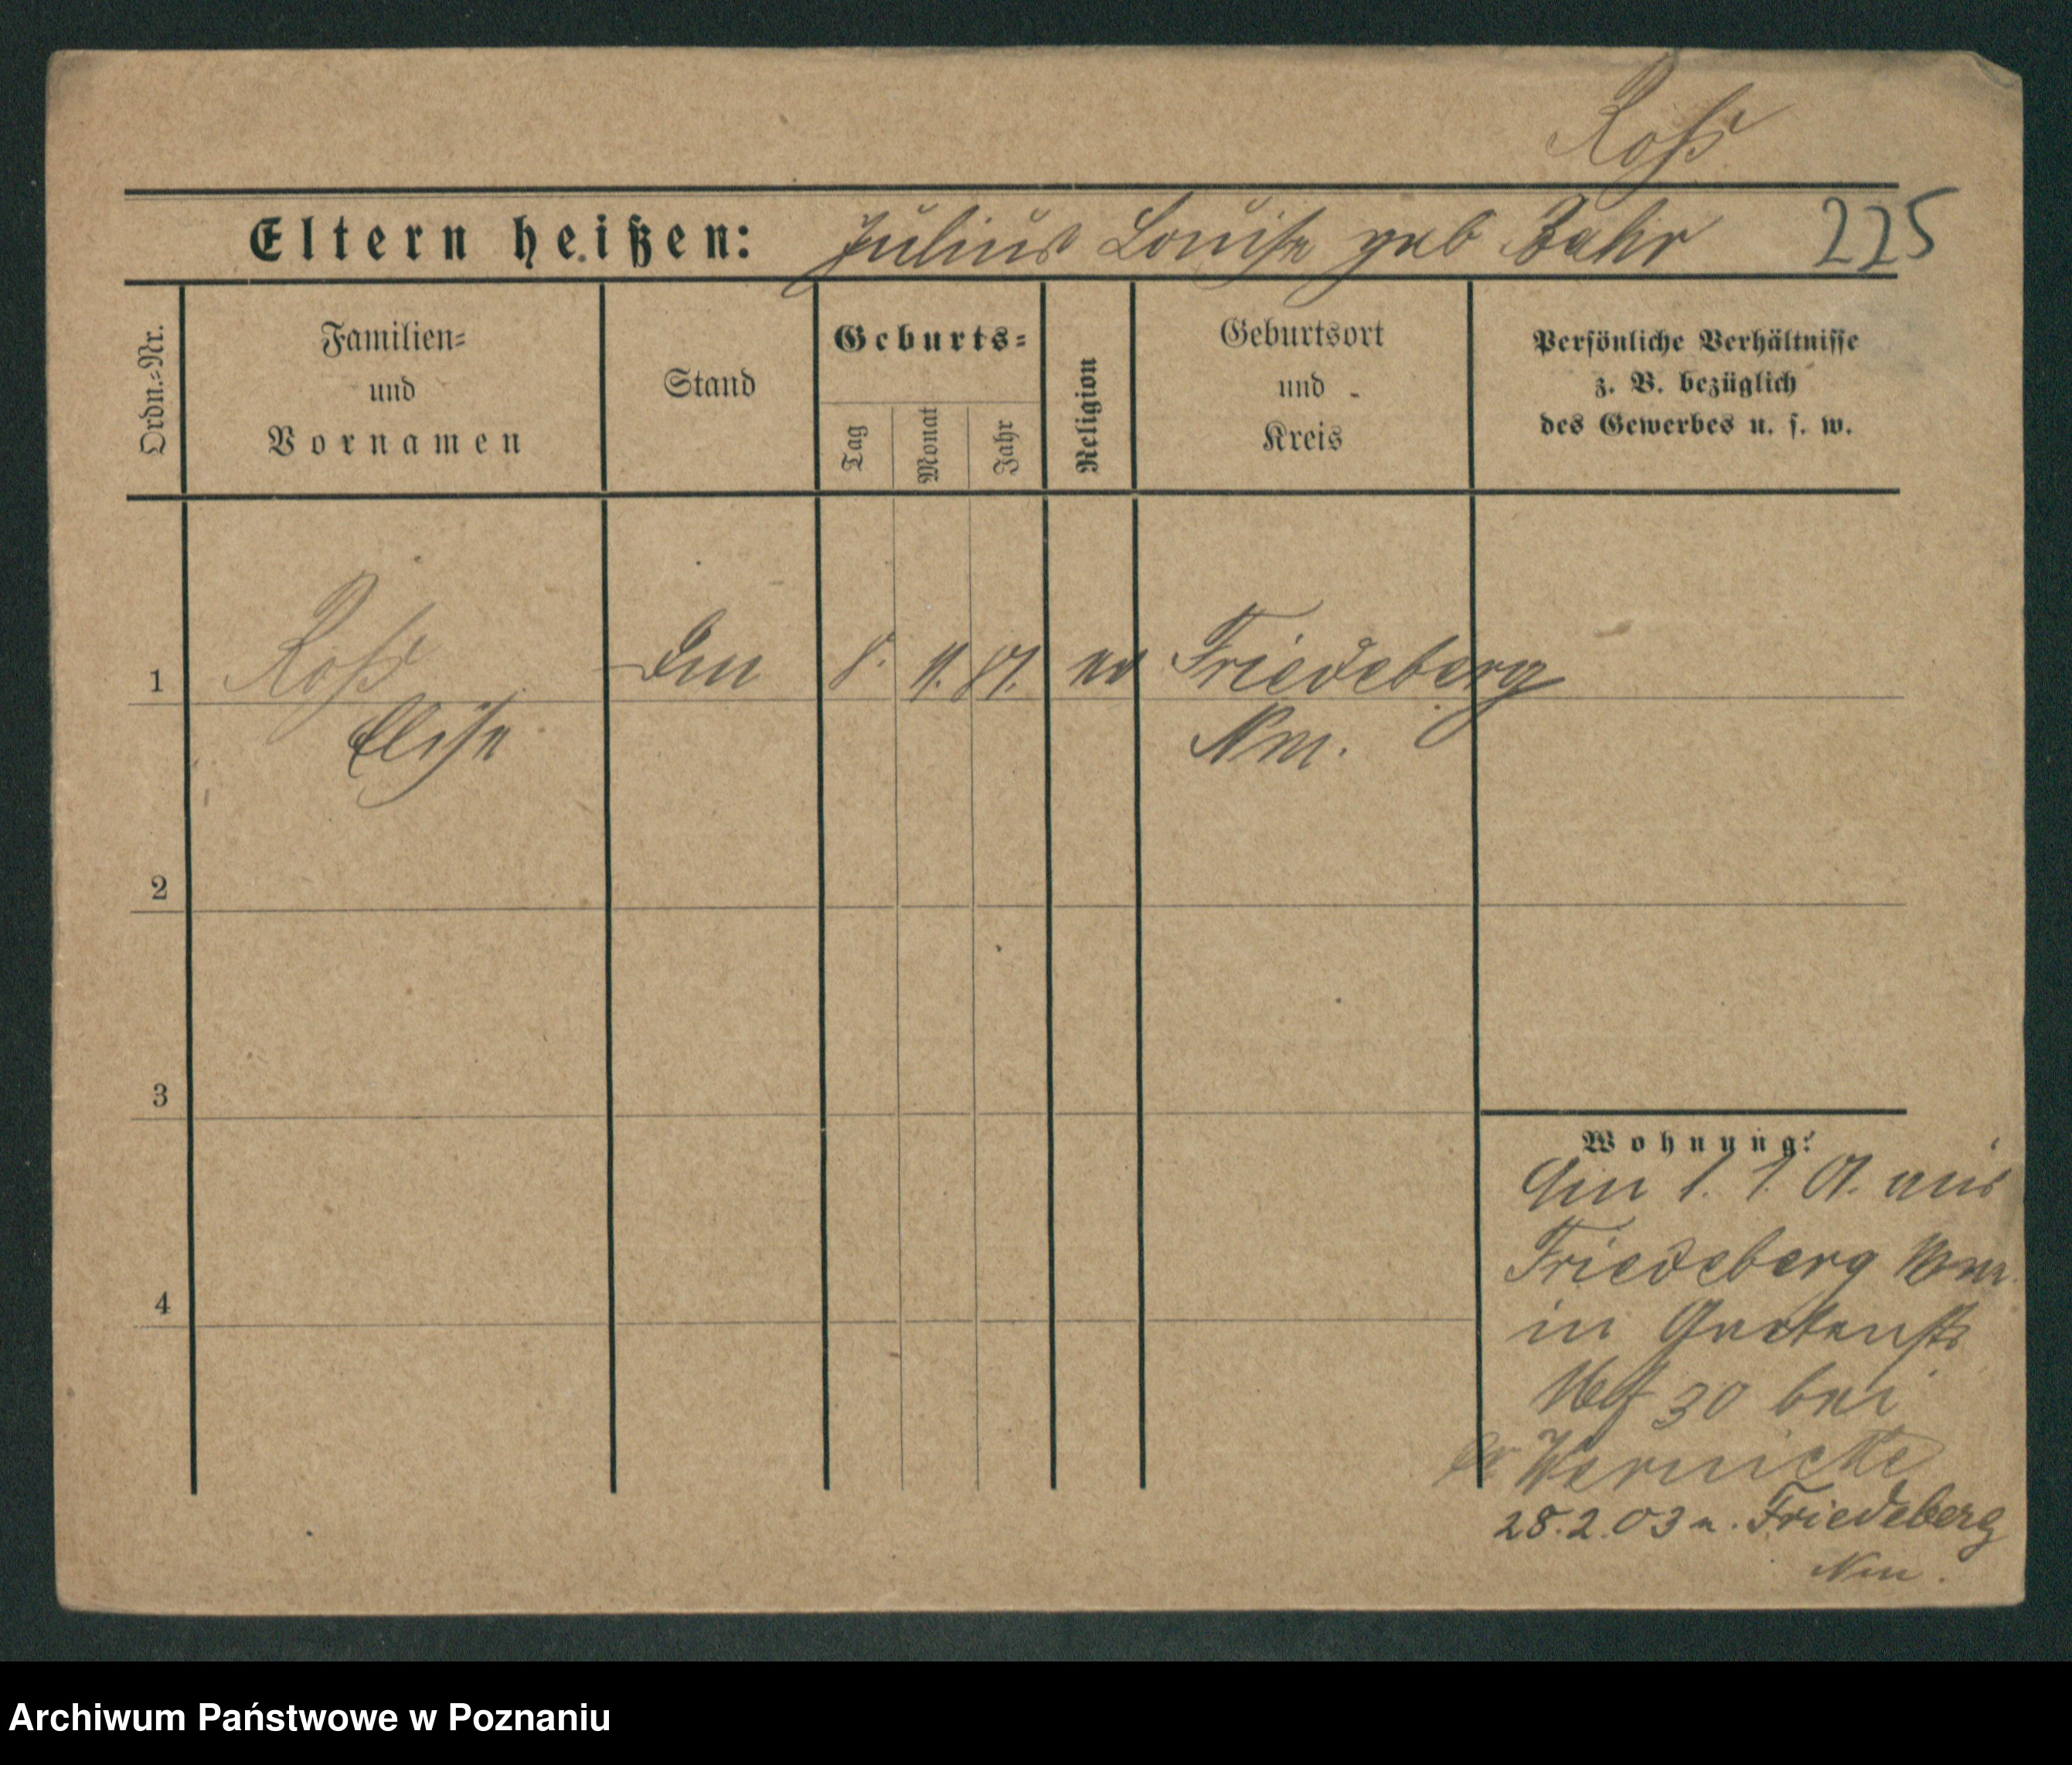 Roß
Eltern heißen: Julius Louise geb Bahr 225
Ordn.=Nr.
Familien=
und
Vornamen
Stand
Geburts=
Tag
Monat
Jahr
Religion
Geburtsort
und
Kreis
Persönliche Verhältnisse
z. B. bezüglich
des Gewerbes u. s. w.
1 Roß 8. 11. 81. ev Friedeberg
Elise Nm.
2
3
4
Wohnung:
1. 1. 01. aus
Friedeberg Nm.
in Gartenstr
30 bei
Wernicke
28.2.03 n. Friedeberg
Nm.
Archiwum Państwowe w Poznaniu